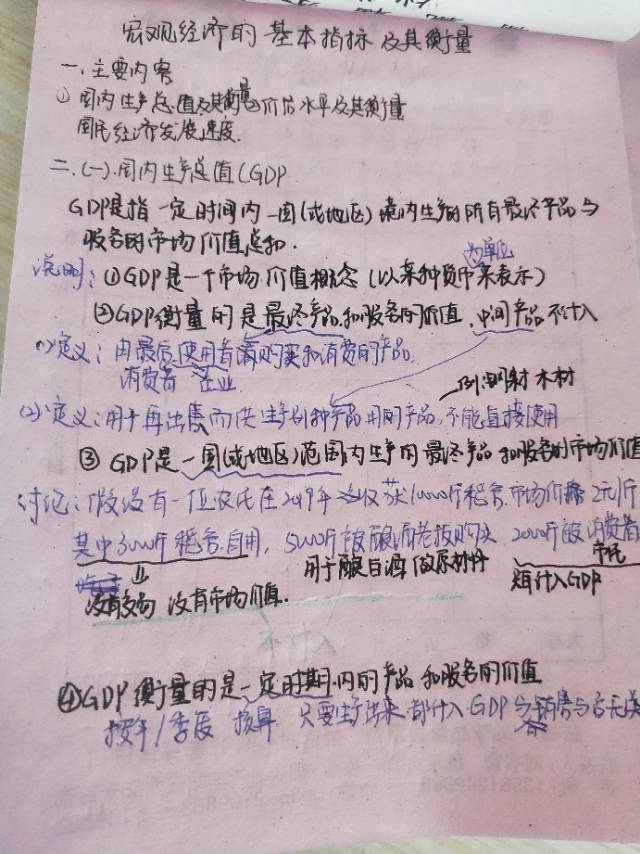 宏观经济的基本指标及其衡量
一.主要内容
① 国内生产总值及其衡量 ②价格水平及其衡量
国民经济发展速度.
二.(一).国内生产总值(GDP
GDP是指一定时间内一国(或地区)境内生产的所有最终产品与
服务的市场价值总和.
为单位
说明:①GDP是一个市场价值概念(以某种货币来表示)
②GDP衡量的是最终产品和服务的价值,中间产品不计入
(1)定义:由最后使用者购买和消费的产品
消费者 企业
例:钢材 木材
(2)定义:用于再出售而供生产别种产品用的产品,不能直接使用
③ GDP是一国(或地区)范围内生产的最终产品和服务的市场价值
讨论:假设有一位农民在2019年收获10000斤稻谷.市场价格2元/斤
其中3000斤稻谷自用,5000斤被酿酒老板购买 2000斤被消费者
没有交易 没有市场价值.
用于酿白酒 做原材料
计入GDP
不计入
④GDP衡量的是一定时期内的产品和服务的价值
按年/季度 换算 只要生产出来都计入GDP 与销售与否无关